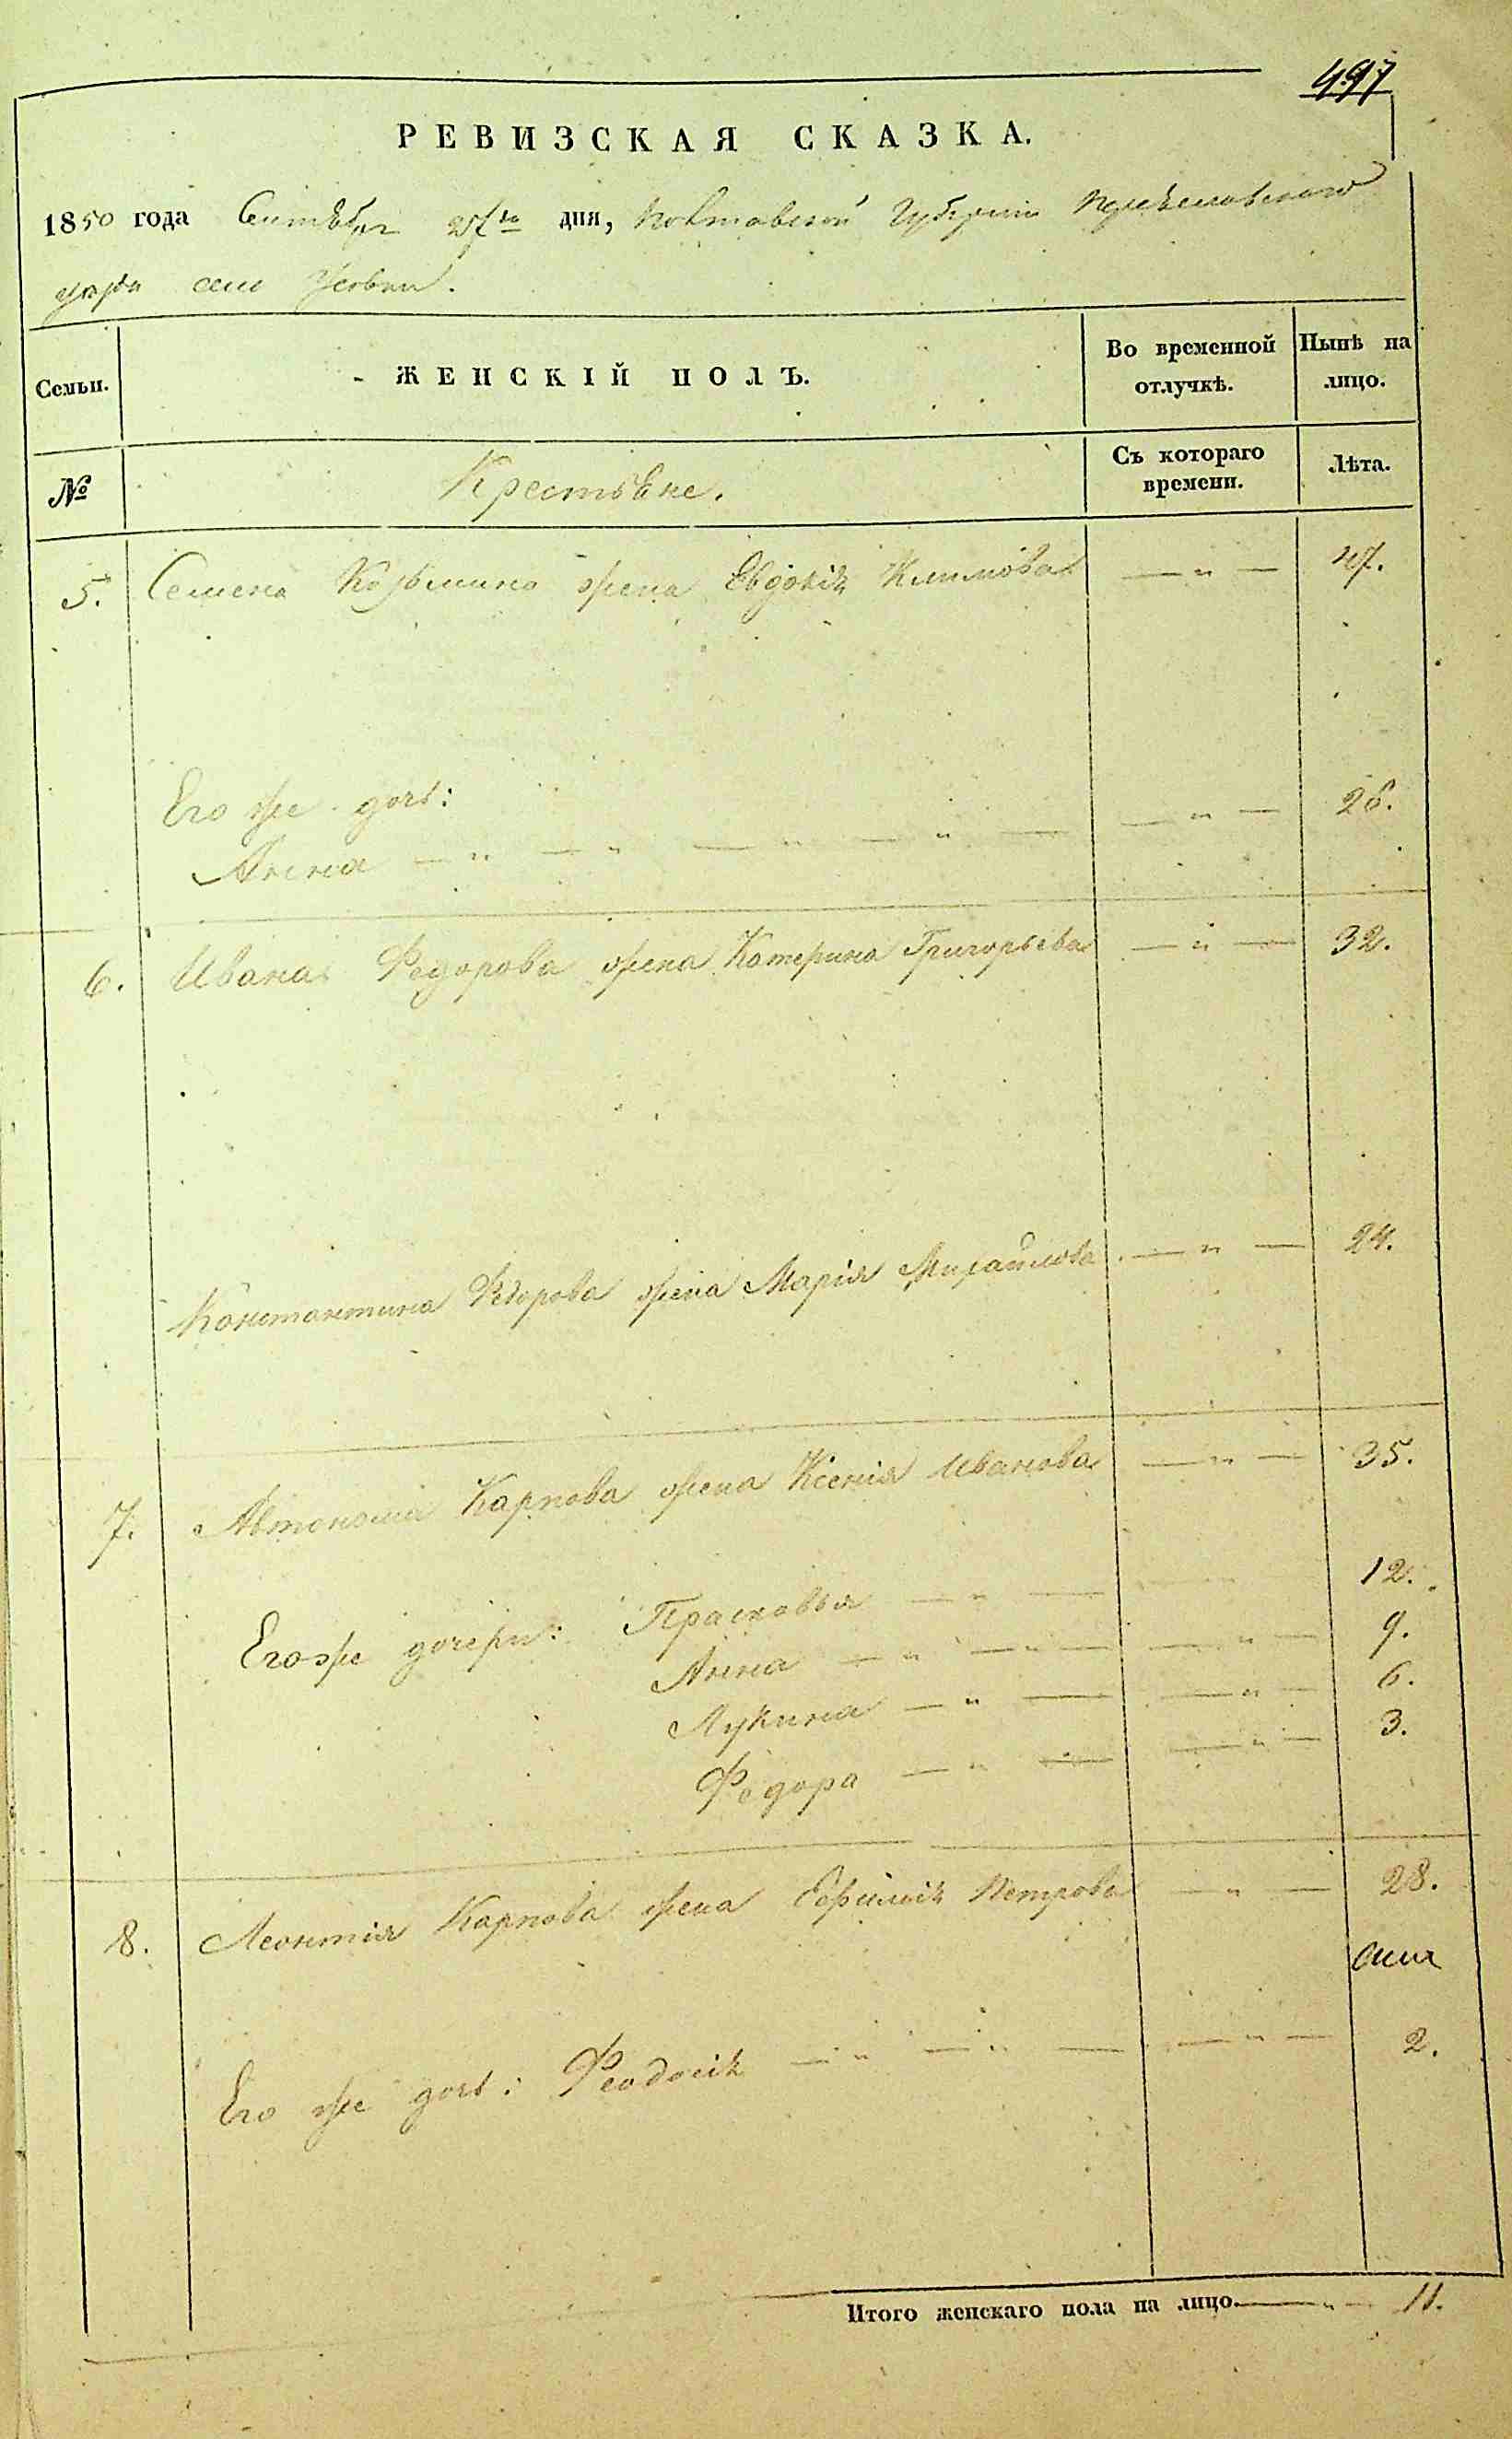 497
РЕВИЗСКАЯ СКАЗКА.
1850 года Сентября 25го дня, Полтавской Губернии
уезда села Усовки.
Семьи. ЖЕНСКІЙ ПОЛЪ. Во временной отлучкѣ. Нынѣ на лицо.
№ Крестьяне. Съ котораго времени. Лѣта.
5. Семена Козьмина жена Евдокія Климова — „ — 47.
Его же дочь:
Анна — „ — „ — „ — „ — — „ — 26.
6. Ивана Федорова жена Катерина Григорьева — „ — 32.
Константина Федорова жена Марія Михайлова — „ — 24.
7. Автонома Карпова жена Ксенія Иванова — „ — 35.
Егоже дочери: Прасковья — „ — 12.
Анна — „ — „ — — „ — 9.
Лукина — „ — — „ — 6.
Федора — „ — — „ — 3.
8. Леонтія Карпова жена Евфимія Петрова — „ — 28.
Его же дочь: Феодосія — „ — „ — — „ — 2.
Итого женскаго пола на лицо — „ — 11.